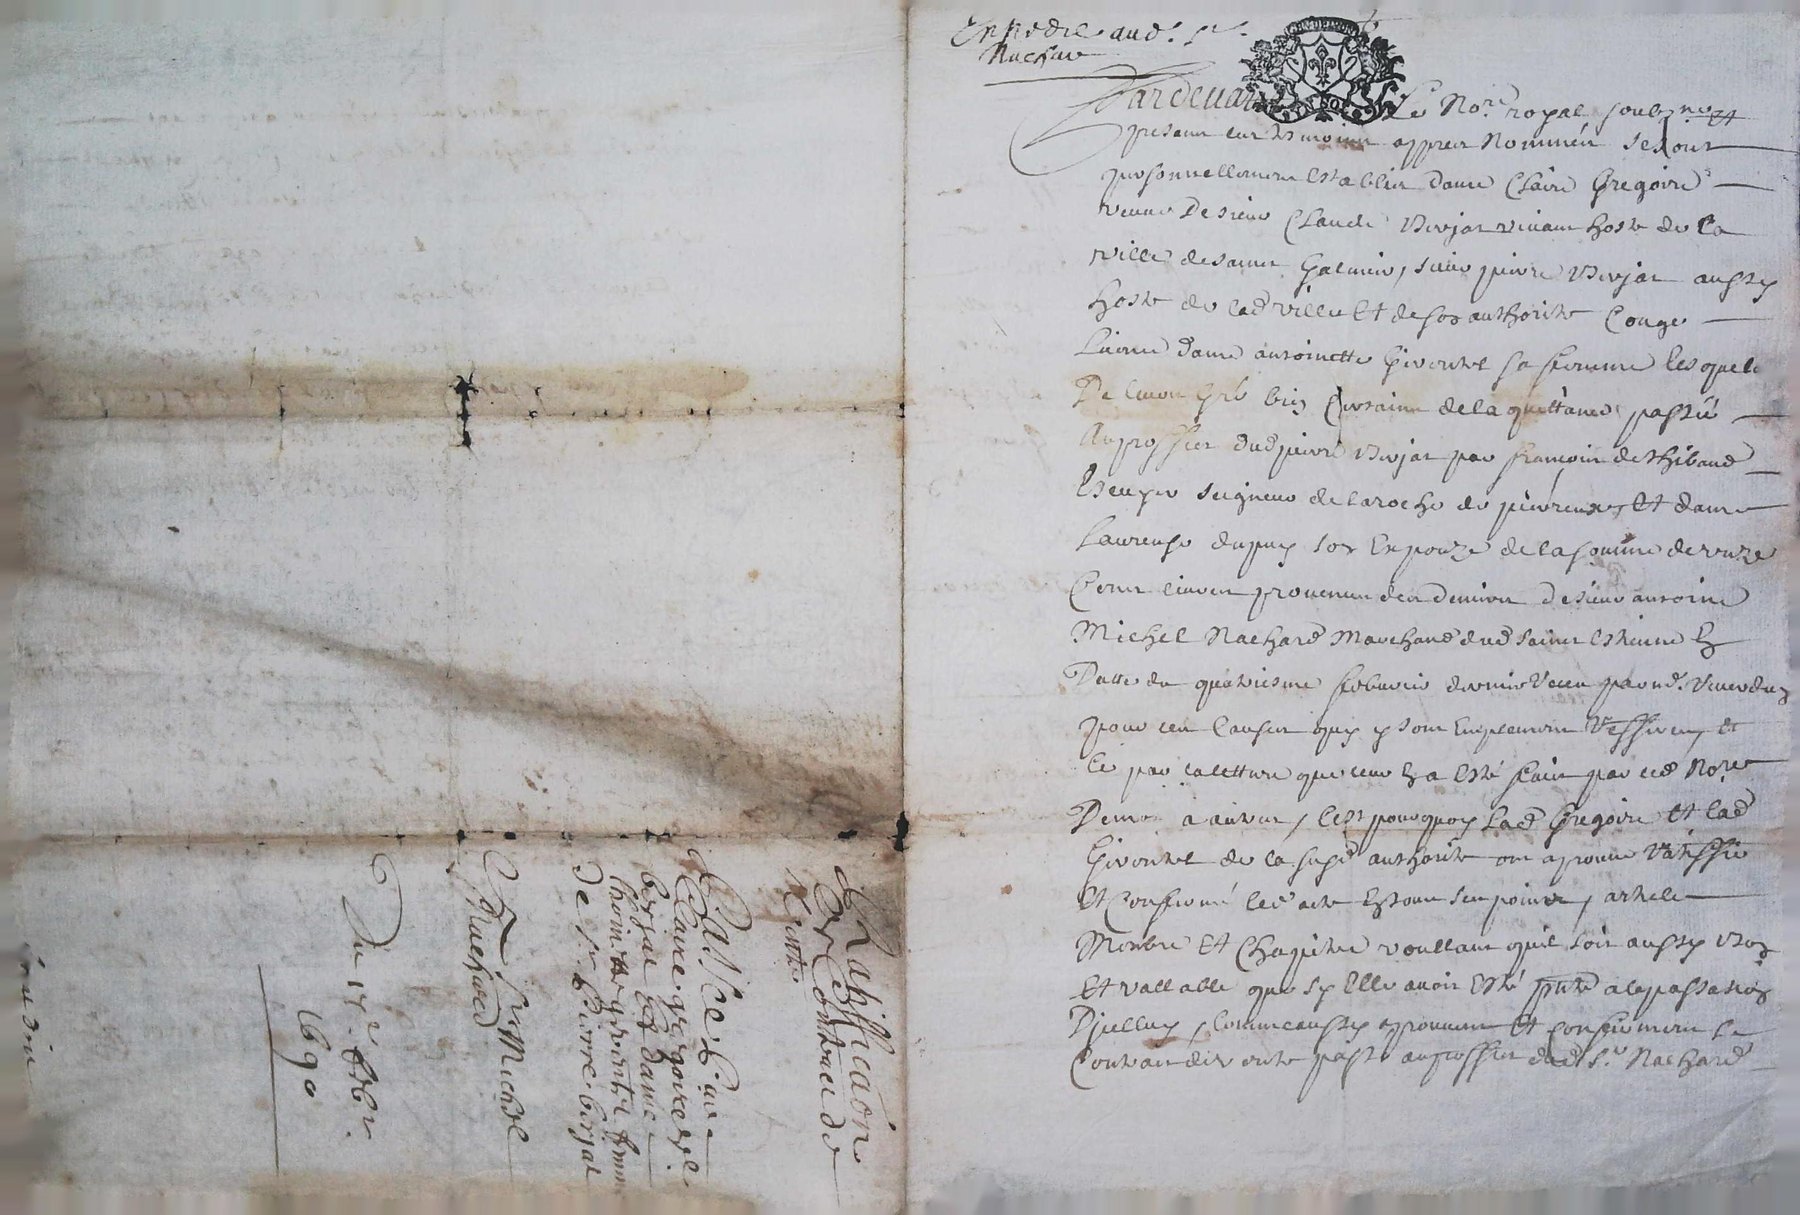 Expedie aud. Sr.
Nachar
Pardevant Le Nore. royal soubzne et
presant les tesmoins appres Nommés se sont
personnellement establis dame Claire Gregoire
veuve de sieur Claude Virjat vivant hoste de la
ville de saint Galmier, sieur pierre Virjat aussy
hoste de lad ville Et de son authorite Conge
Licence dame antoinette Gironte sa femme lesquels
De leur Gré bien Certains de la quittance passée
Au proffict dud pierre Virjat par francois de Thibaud
Escuyer seigneur de la roche de pierreux Et dame
Laurense dupuy son Expouze de la somme de unze
Cent livres provenue des deniers de sieur antoine
Michel Nachard Marchand dud saint Estienne En
Datte du quatriesme febvrier dernier receu par
pour les Causes quy y sont Exprimées
Et par la letture que leur En a Esté faict par led Nore
De mot a autre, C'est pourquoy Lad Gregoire Et lad
Gironte de la susd authorite ont aprouvé Ratiffié
Et Confirmé led acte En tous ses points, article
Membre Et Chapitre voullant quil soit aussy bon
Et vallable que sy Elle avoit Esté pnte a la passation
D'jcelluy, Comme aussy approuvent Et Confirment le
Contract de rente passé au proffict dud Sr. Nachard
Ratiffication
Et Contract de
rente
Passée par
Claire gregoire vve
birjat et dame
thoinette gironte femme
de Sr. Pierre birjat
A Sr. Michel
Nachard
Du 17e. fevr.
1690